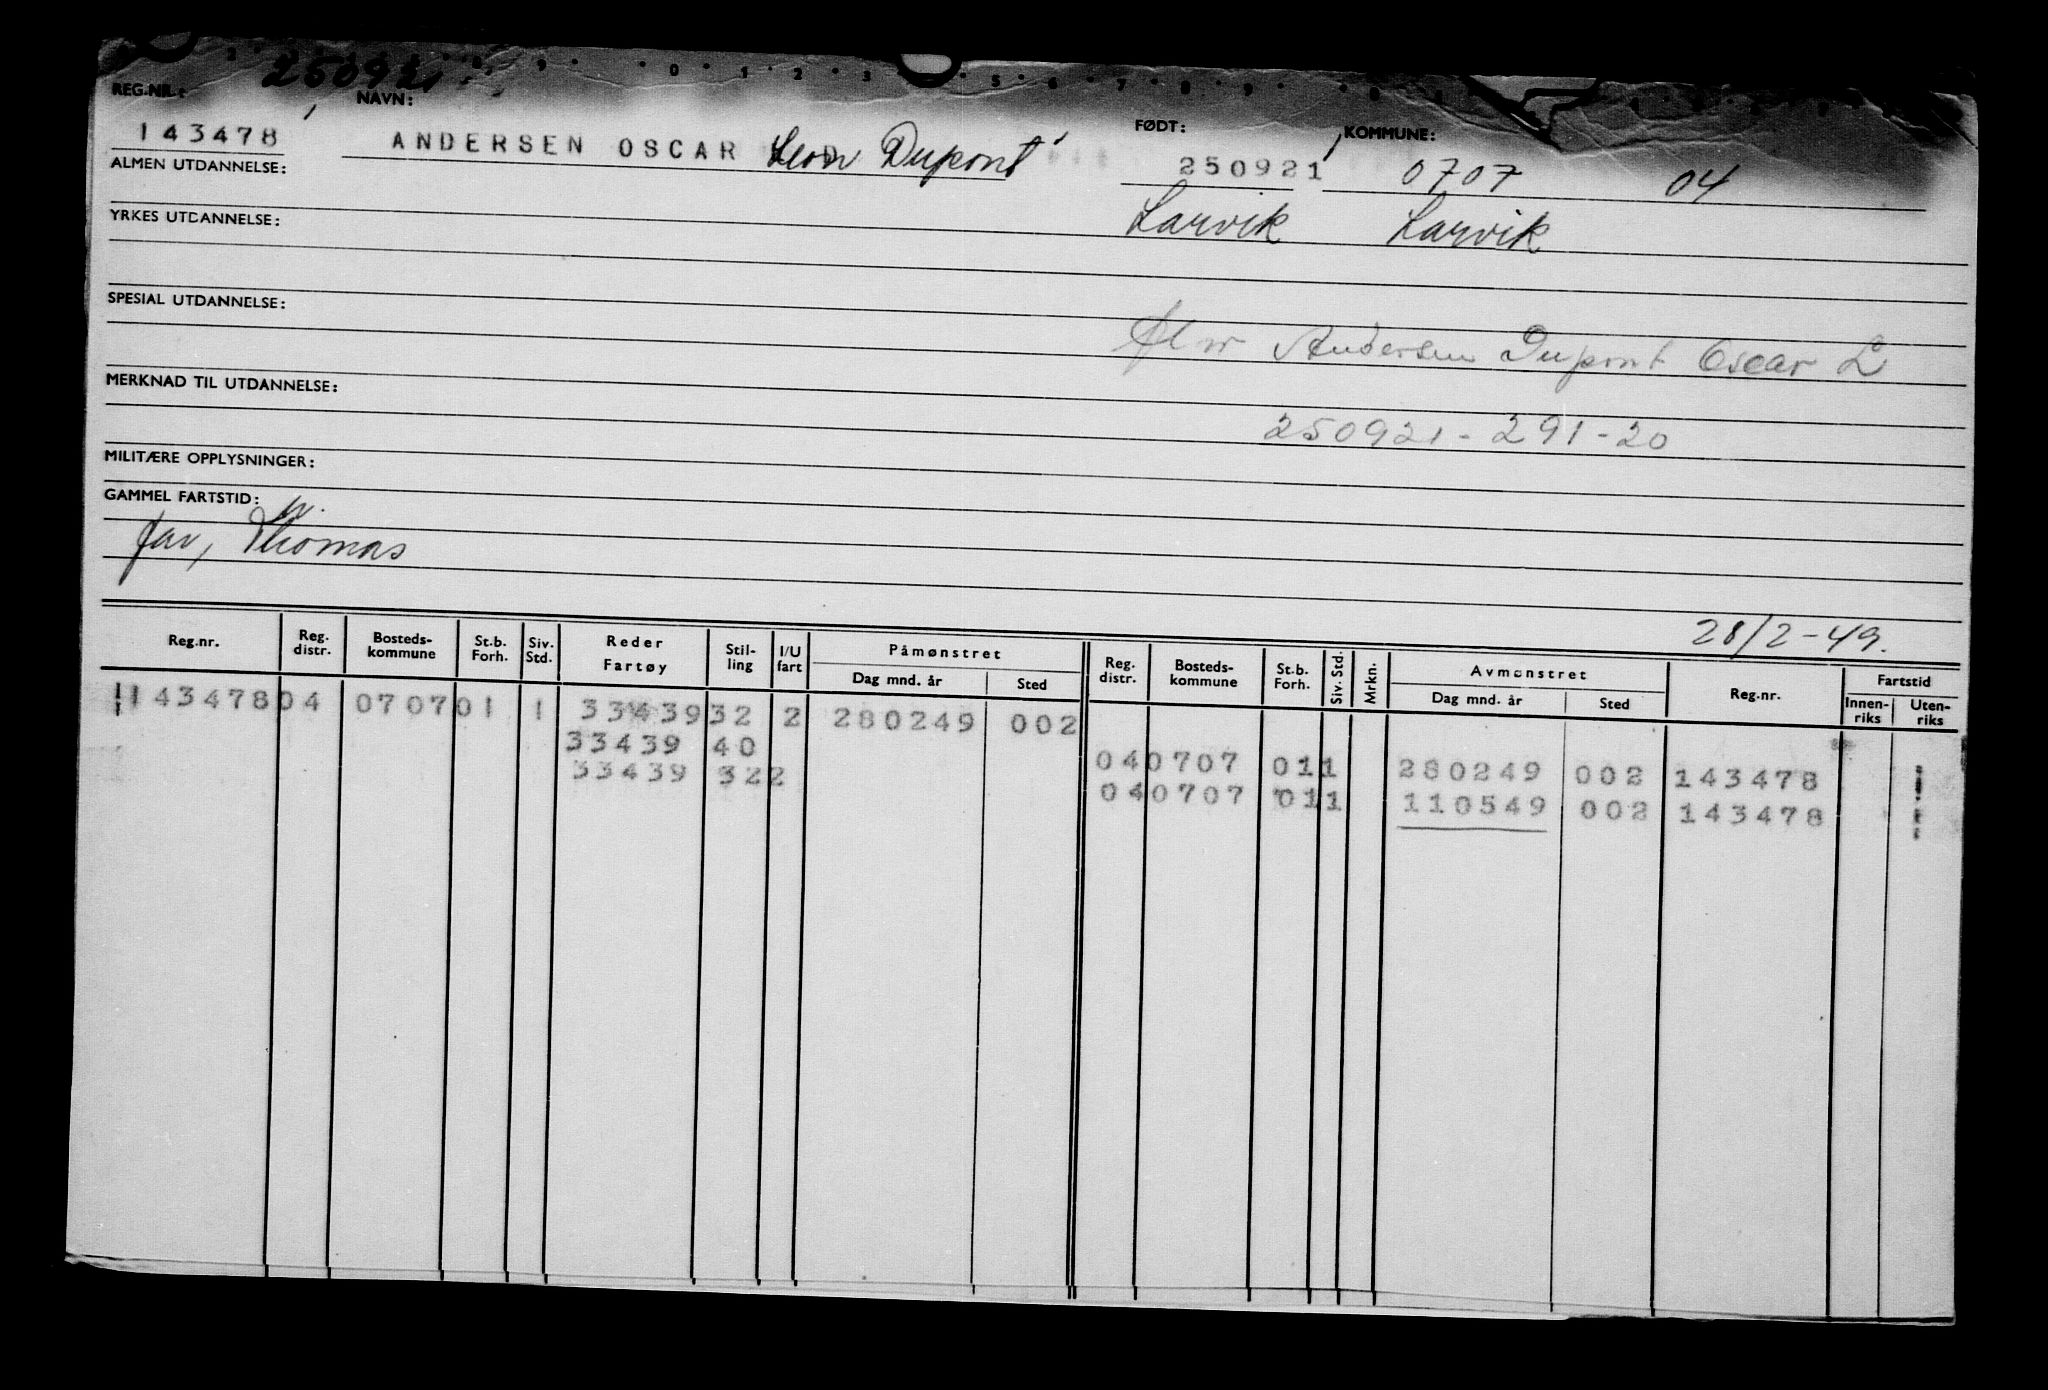 250921
REG.NR.: NAVN: FØDT: KOMMUNE:
143478 ANDERSEN OSCAR Leon Dupont 250921 0707 04
ALMEN UTDANNELSE:
Larvik Larvik
YRKES UTDANNELSE:
SPESIAL UTDANNELSE:
Andersen Dupont Oscar L
MERKNAD TIL UTDANNELSE:
250921-291-20
MILITÆRE OPPLYSNINGER:
GAMMEL FARTSTID:
far, Thomas
28/2-49.
Reg.nr. Reg. distr. Bosteds-kommune St.b. Forh. Siv. Std. Reder Fartøy Stil-ling I/U fart Påmønstret Dag mnd. år Sted Reg. distr. Bosteds-kommune St.b. Forh. Siv. Std. Mrkn. Avmønstret Dag mnd. år Sted Reg.nr. Fartstid Innen-riks Uten-riks
143478 04 0707 01 1 33439 32 2 280249 002
33439 40 04 0707 01 1 280249 002 143478
33439 32 2 04 0707 01 1 110549 002 143478